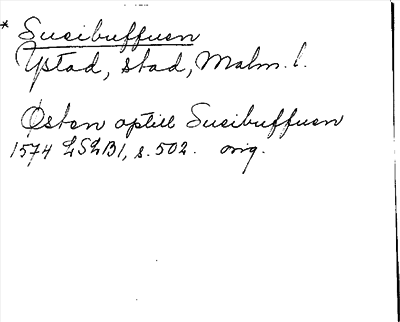 * Susibuffuen
Ystad, stad, Malm. l.
Østen optill Susibuffuen
1574 LSLB1, s. 502. orig.